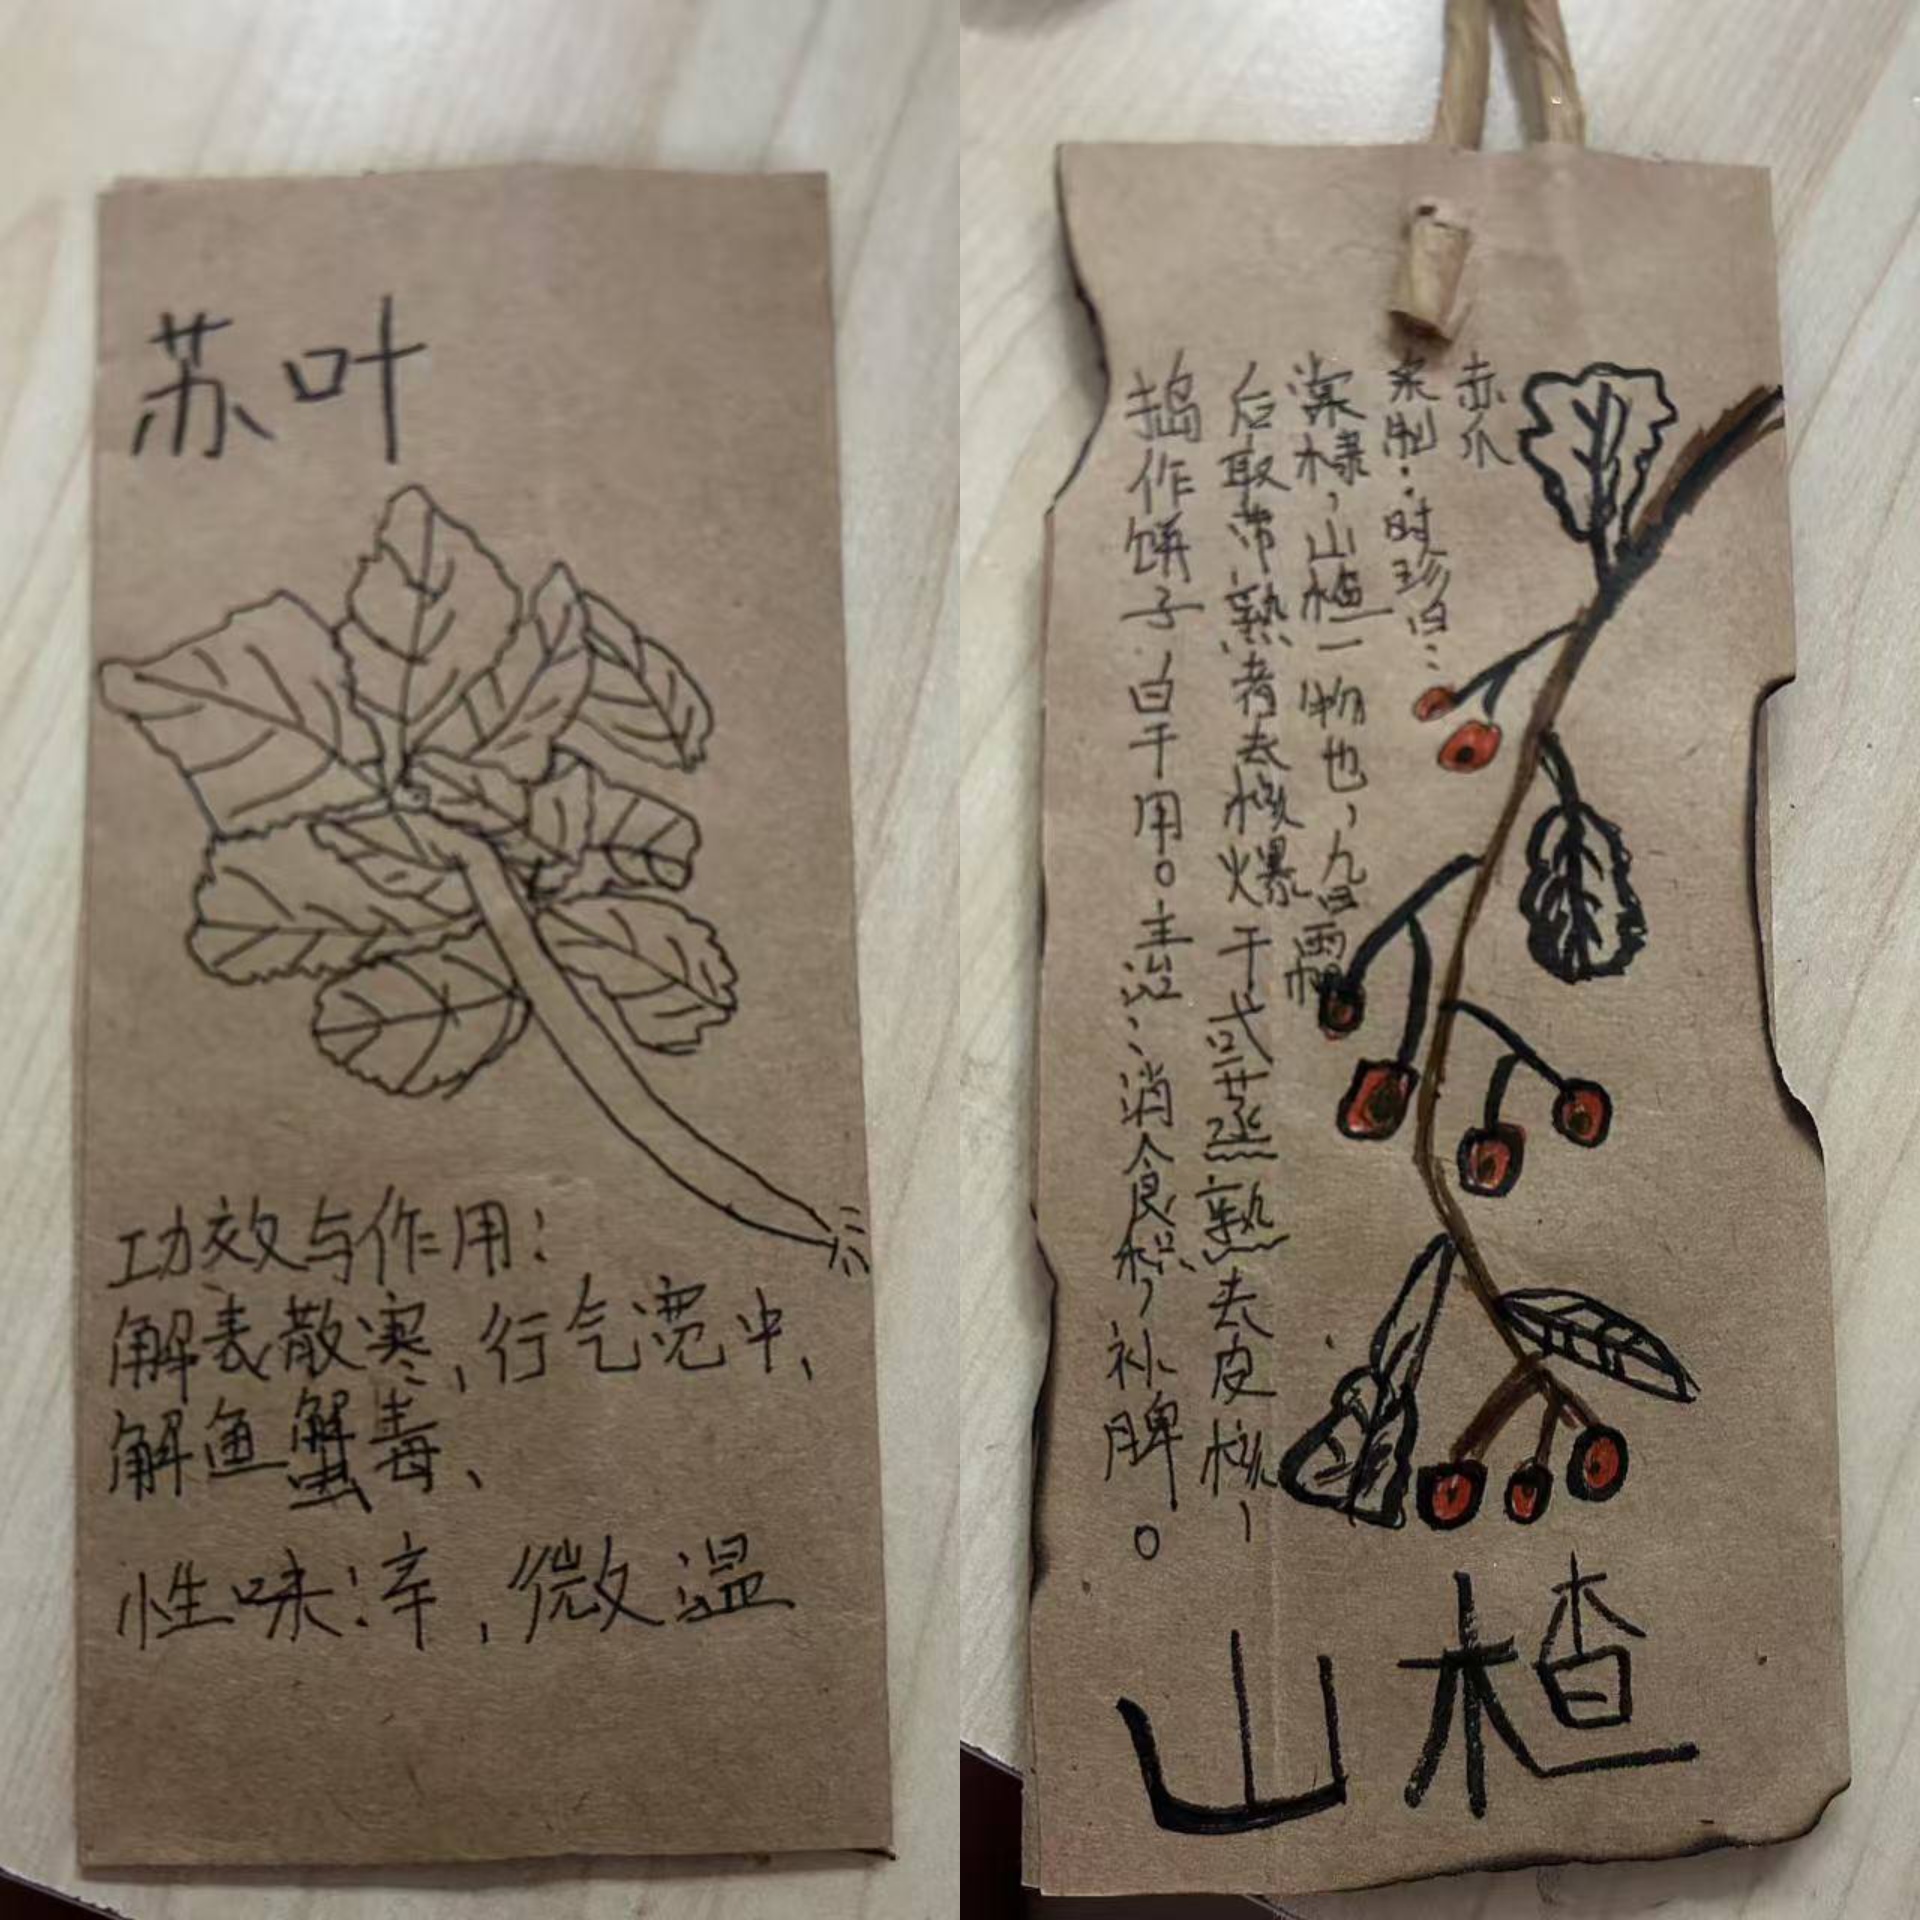 苏叶
功效与作用:
解表散寒,行气宽中、
解鱼蟹毒、
性味:辛,微温
赤爪
炮制:时珍曰:
棠棣,山楂一物也,九月霜
后取带熟者去核爆干或蒸熟去皮核,
捣作饼子,白干用。主治:消食积,补脾。
山楂